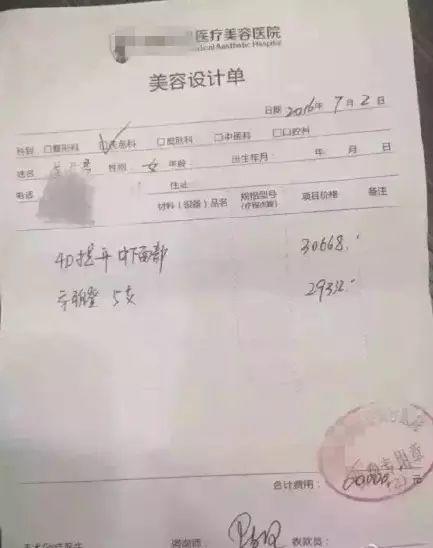 医疗美容医院
dical Aesthetic Hospital
美容设计单
日期 2016年 7月 2日
科别 □整形科 皮肤科 □中医科 □口腔科
姓名 性别 女 年龄: 出生年月: 年 月 日
电话 住址
材料（仪器）品名 规格型号 项目价格 备注
4D提升 中下面部 30668.
5支 29332.
专用章
合计费用: 60000 元
咨询师: 收款员: